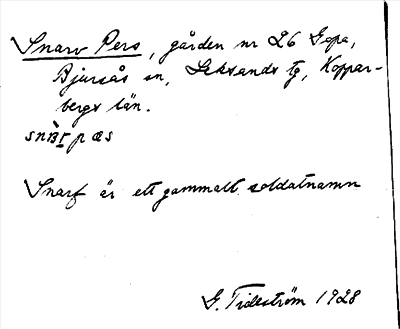 Snarv Pers, gården nr 26 Gopa,
Bjursås sn, Leksands tg, Koppar-
bergs län.
pæs
Snarf är ett gammalt soldatnamn
G. Tideström 1928